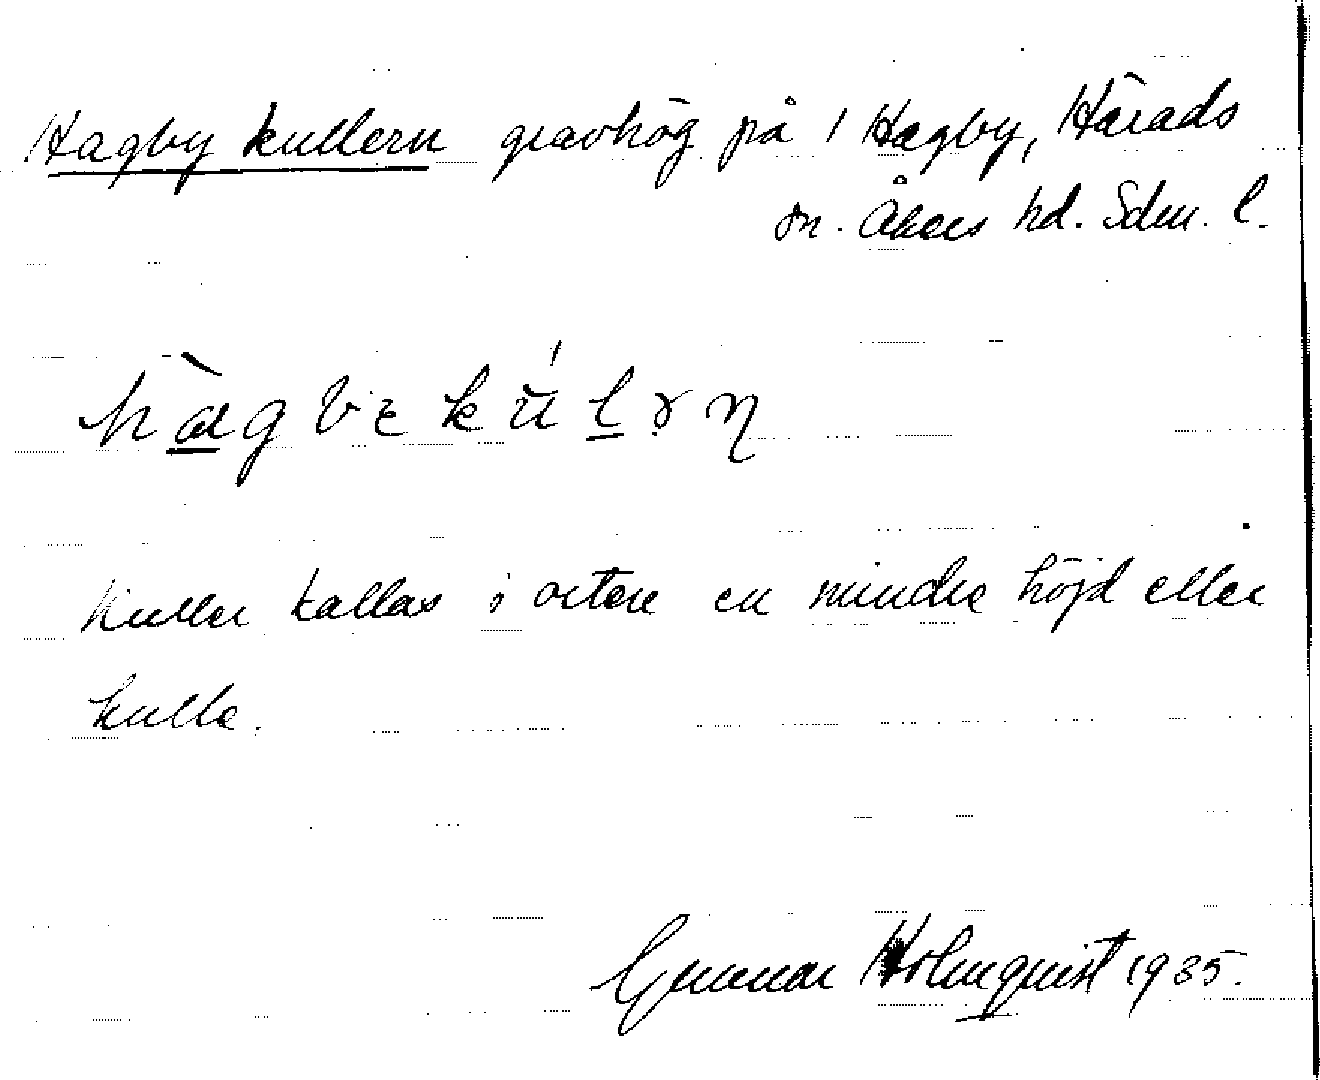 Hagby kullern gravhög på 1 Hagby, Härads
sn. Åkers hd. Sdm. l.
hàgvɛkŭ́lɤŋ
Kuller kallas i orten en mindre höjd eller
kulle.
Gunnar Holmquist 1935.